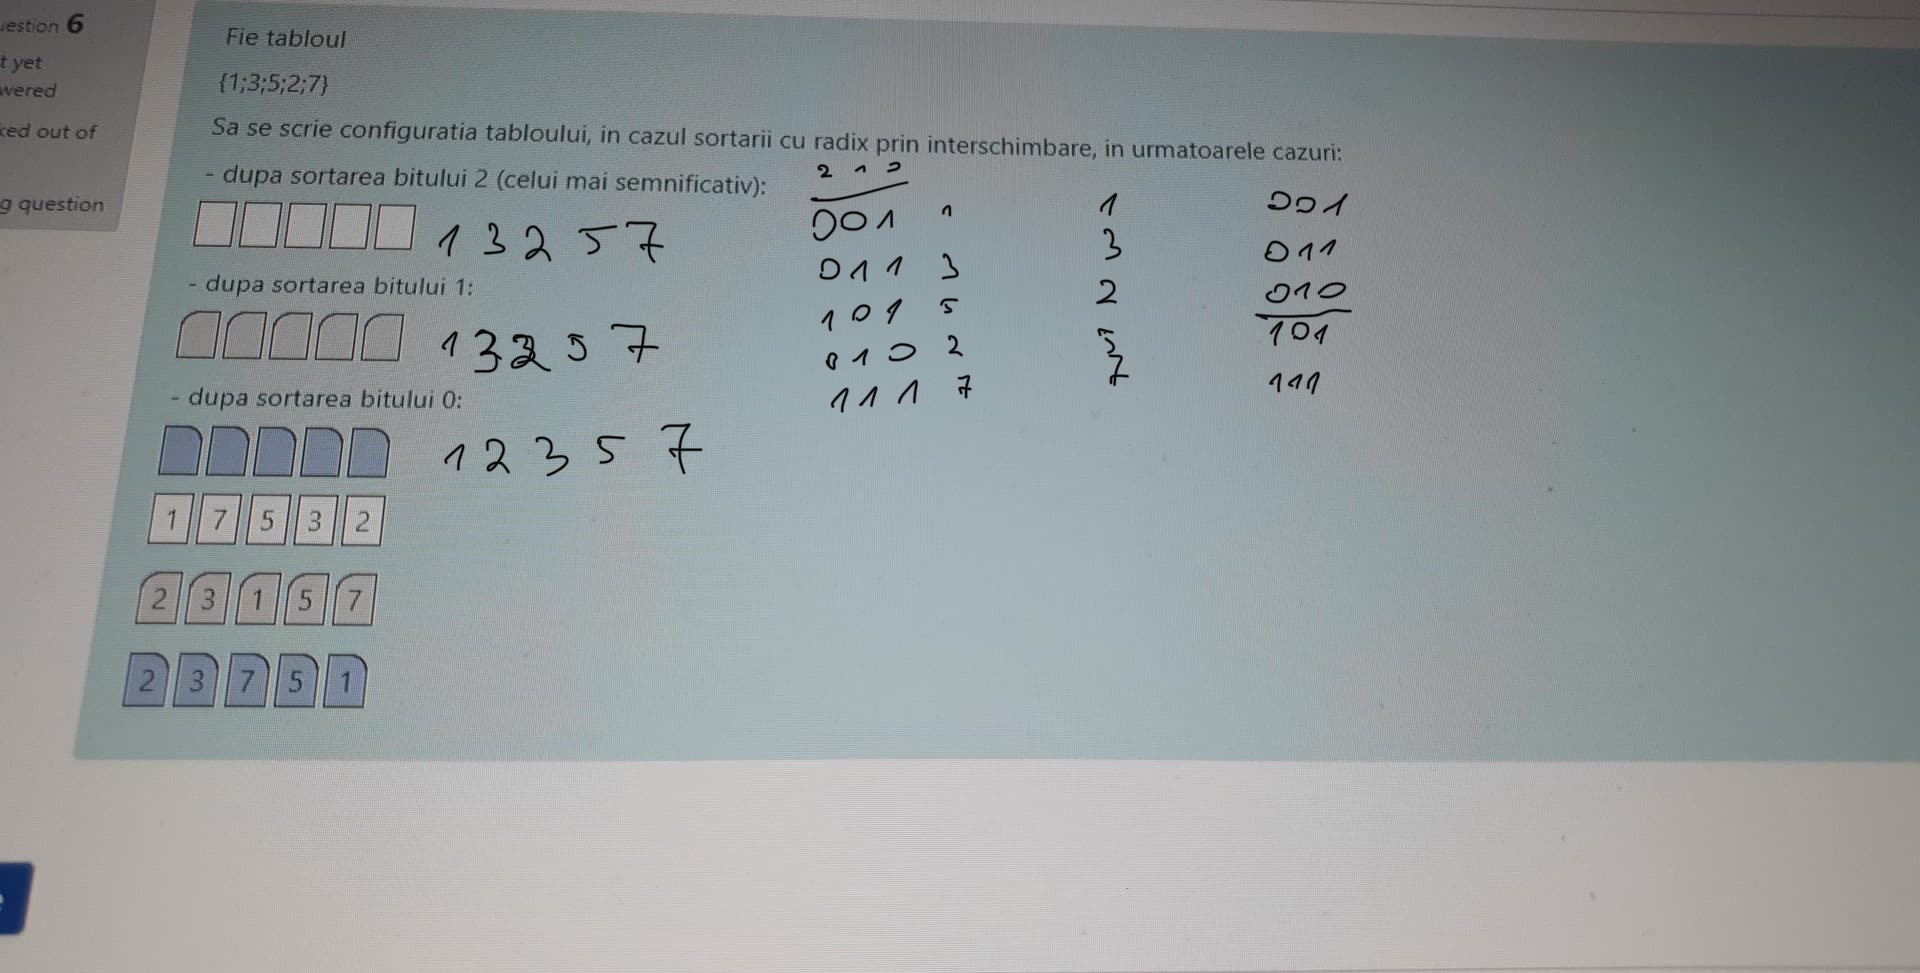 uestion 6
t yet
wered
ked out of
g question
Fie tabloul
{1;3;5;2;7}
Sa se scrie configuratia tabloului, in cazul sortarii cu radix prin interschimbare, in urmatoarele cazuri:
- dupa sortarea bitului 2 (celui mai semnificativ):
1 3 2 5 7
- dupa sortarea bitului 1:
1 3 2 5 7
- dupa sortarea bitului 0:
1 2 3 5 7
1 7 5 3 2
2 3 1 5 7
2 3 7 5 1
2 1 0
001 1
011 3
101 5
010 2
111 7
1
3
2
5
7
001
011
010
101
111